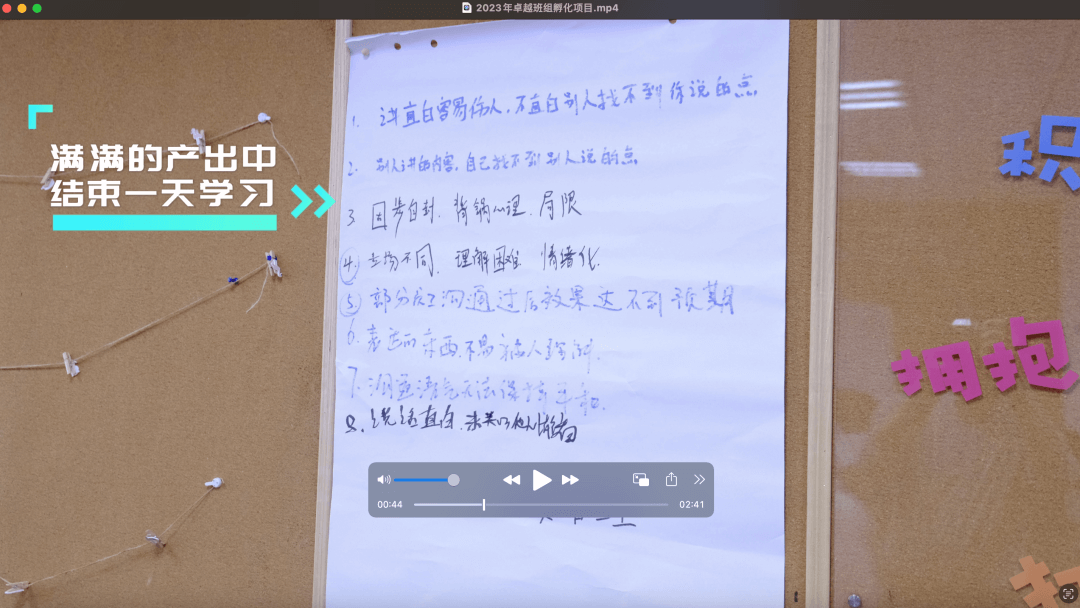 2023年卓越班组孵化项目.mp4
满满的产出中
结束一天学习
1. 讲直白容易伤人，不直白别人找不到你说的点
2. 别人讲的内容，自己找不到别人说的点
3. 固步自封、背锅心理、局限
4. 立场不同、理解困难 情绪化
5. 部分员工沟通过后效果达不到预期
6. 表达的东西，不易被人理解.
7. 沟通语气无法保持平和.
8. 说话直白.未关心他人情绪
积
拥抱
00:44
02:41